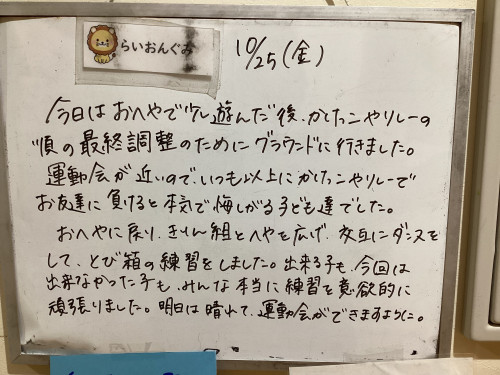 らいおんぐみ
10/25(金)
今日はおへやで少し遊んだ後、かけっこやリレーの
順の最終調整のためにグラウンドに行きました。
運動会が近いので、いつも以上にかけっこやリレーで
お友達に負けると本気で悔しがる子ども達でした。
おへやに戻り、きりん組とへやを広げ、交互にダンスを
して、とび箱の練習をしました。出来る子も、今回は
出来なかった子も、みんな本当に練習を意欲的に
頑張りました。明日は晴れて、運動会ができますように。